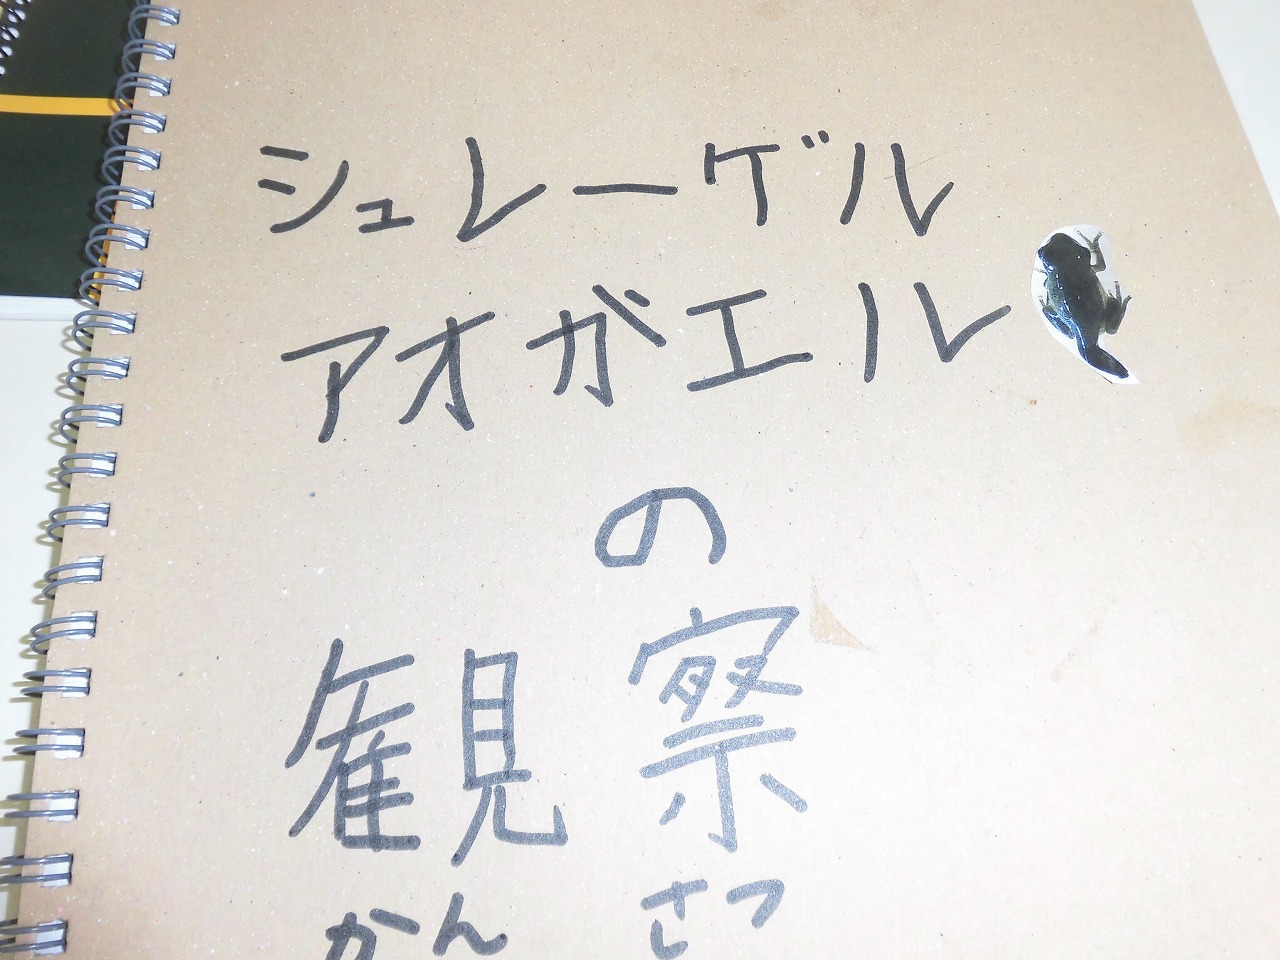 シュレーゲル
アオガエル
の
観察
かんさつ